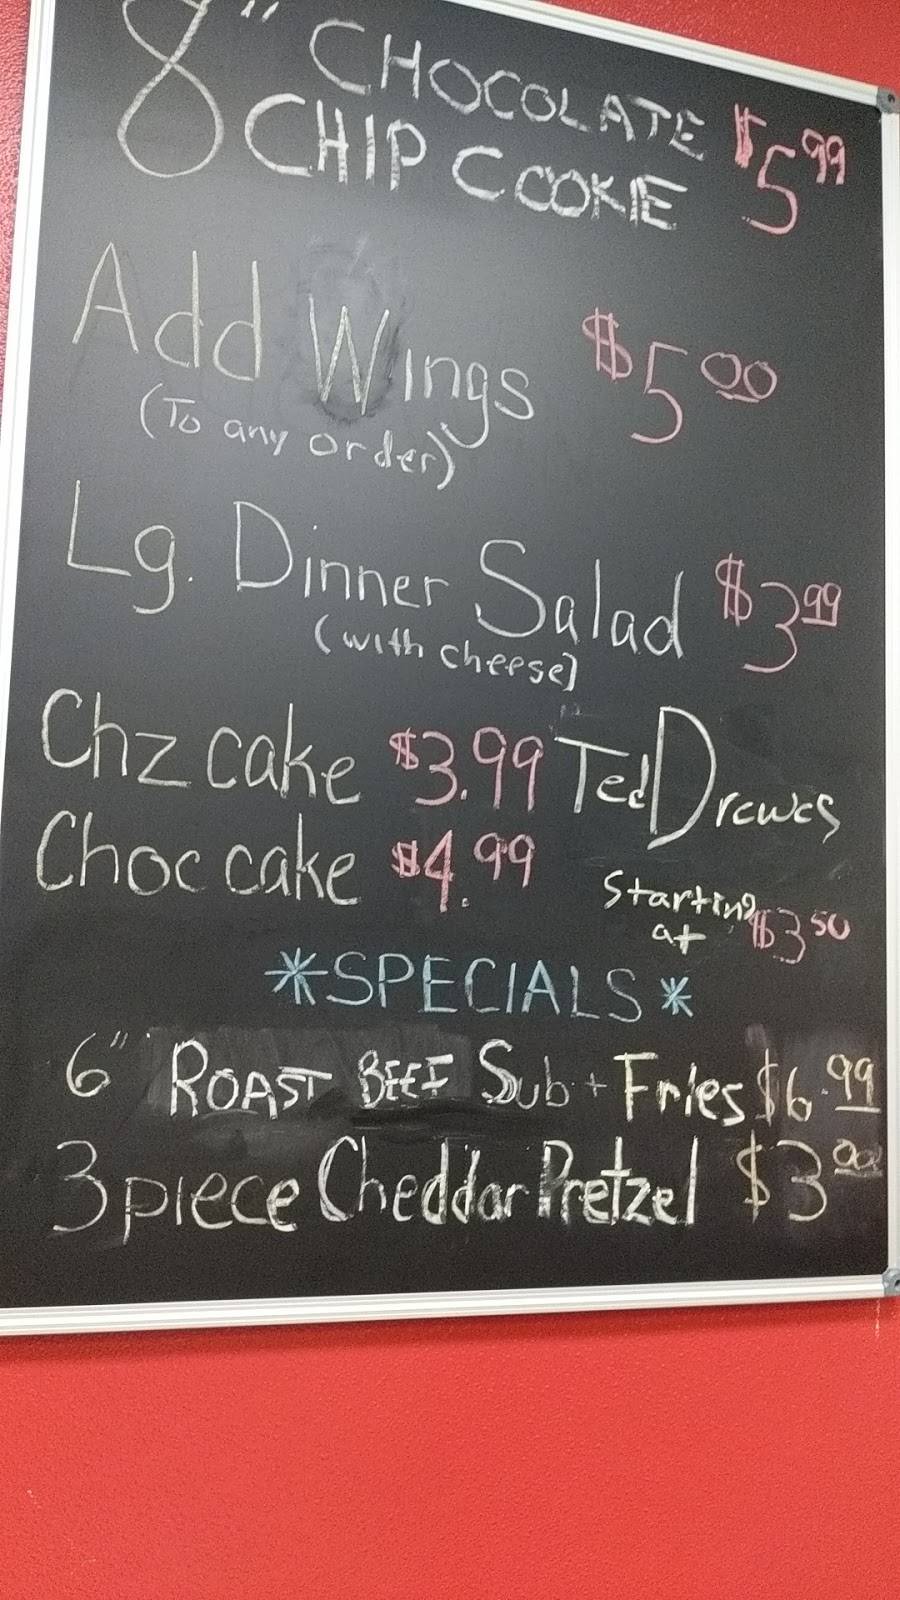 8" CHOCOLATE
CHIP COOKIE $5.99
Add Wings $5.00
(To any order)
Lg. Dinner Salad $3.99
(with cheese)
Chz cake $3.99 Ted Drewes
Choc cake $4.99 Starting
at $3.50
*SPECIALS*
6" ROAST BEEF Sub + Fries $6.99
3 piece Cheddar Pretzel $3.00